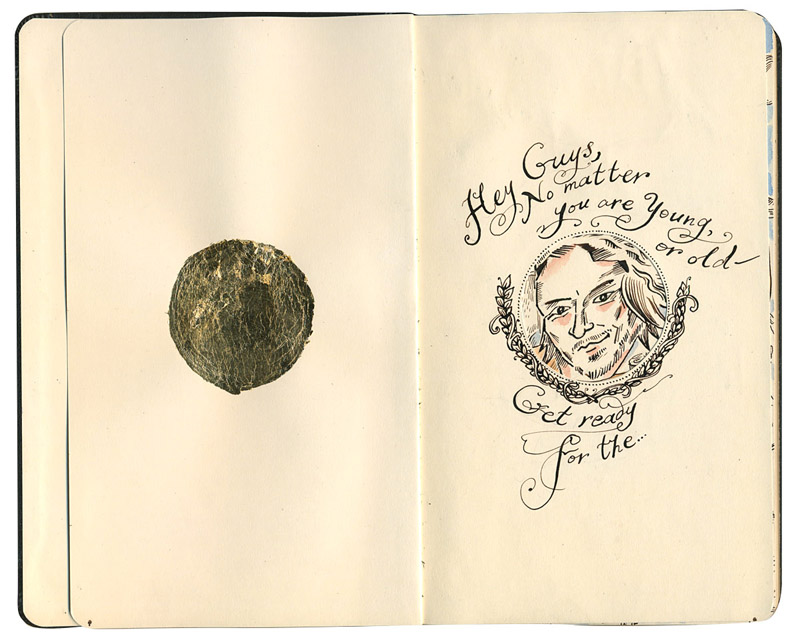 Hey Guys,
No matter
you are Young,
or old—
Get ready
for the...